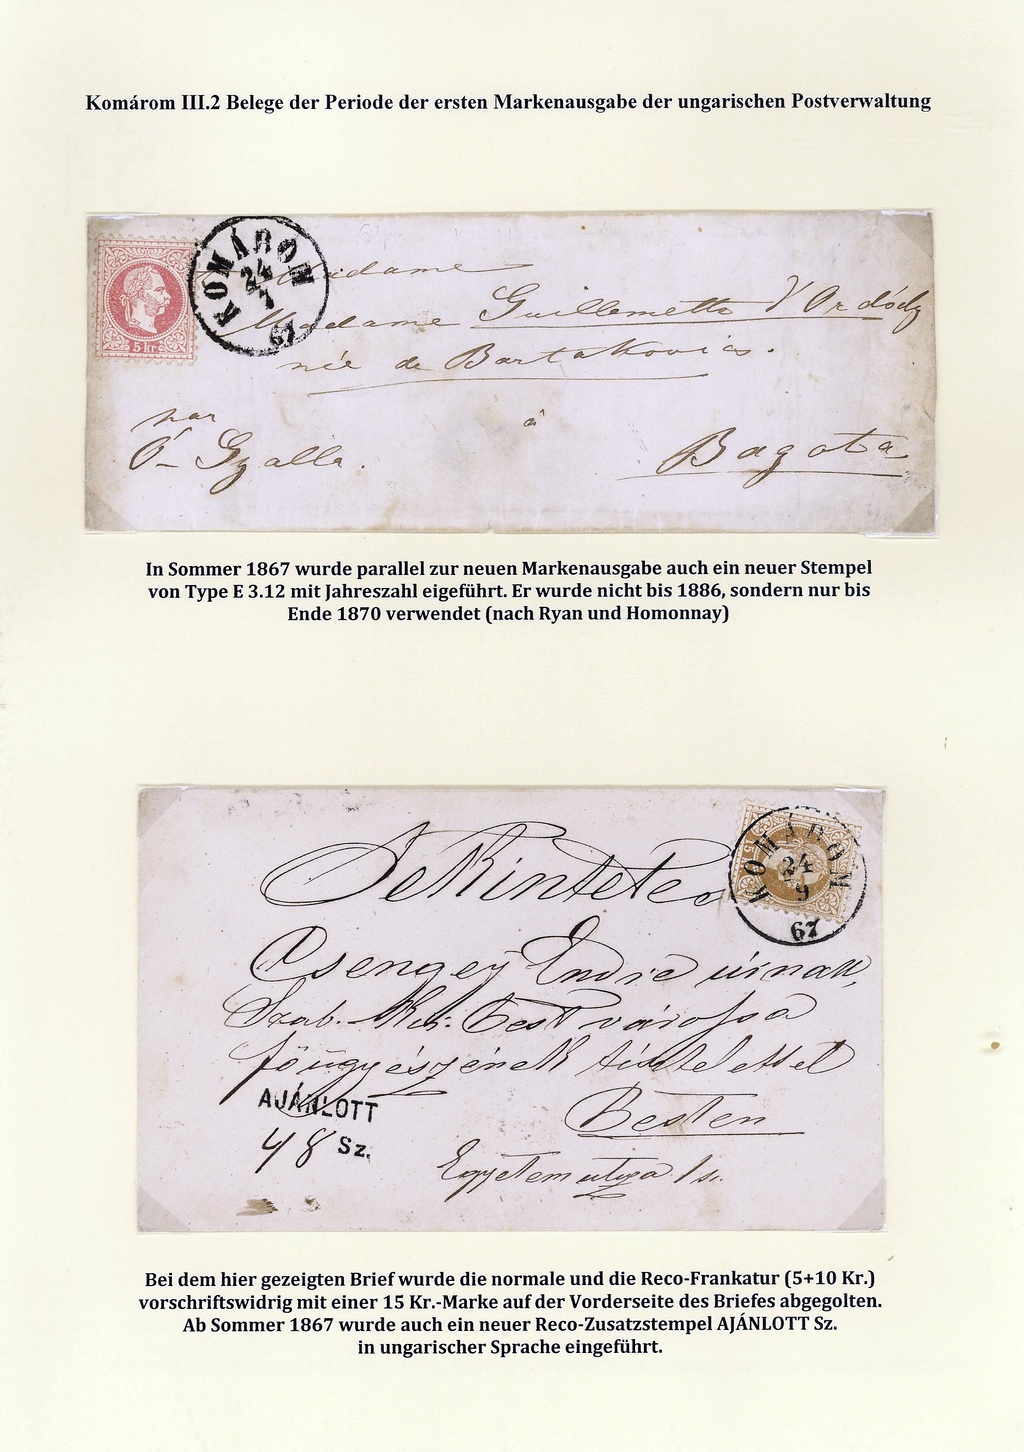 Komárom III.2 Belege der Periode der ersten Markenausgabe der ungarischen Postverwaltung
5 kr.
KOMÁROM
24
67
Madame
Madame Guillemette d'Ordódy
née de Bartakovics.
par
à
Ó-Gyalla.
Bagota
In Sommer 1867 wurde parallel zur neuen Markenausgabe auch ein neuer Stempel
von Type E 3.12 mit Jahreszahl eigeführt. Er wurde nicht bis 1886, sondern nur bis
Ende 1870 verwendet (nach Ryan und Homonnay)
15
KOMÁROM
24
9
67
Tekintetes
Csengey Endre úrnak,
Szab. Kir. Pest városa
főügyészének tisztelettel
AJÁNLOTT
Pesten
48 Sz.
Egyetem utcza 1 sz.
Bei dem hier gezeigten Brief wurde die normale und die Reco-Frankatur (5+10 Kr.)
vorschriftswidrig mit einer 15 Kr.-Marke auf der Vorderseite des Briefes abgegolten.
Ab Sommer 1867 wurde auch ein neuer Reco-Zusatzstempel AJÁNLOTT Sz.
in ungarischer Sprache eingeführt.